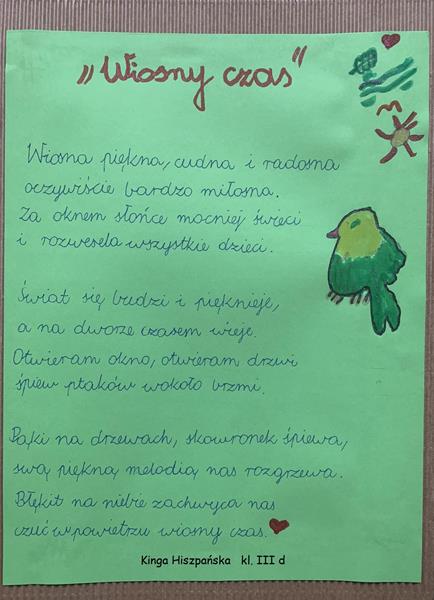 „Wiosny czas"
Wiosna piękna, cudna i radosna
oczywiście bardzo miłosna.
Za oknem słońce mocniej świeci
i rozwesela wszystkie dzieci.
Świat się budzi i pięknieje,
a na dworze czasem wieje.
Otwieram okno, otwieram drzwi
śpiew ptaków wokoło brzmi.
Pąki na drzewach, skowronek śpiewa,
swą piękną melodią nas rozgrzewa.
Błękit na niebie zachwyca nas
czuć w powietrzu wiosny czas.
Kinga Hiszpańska kl. III d